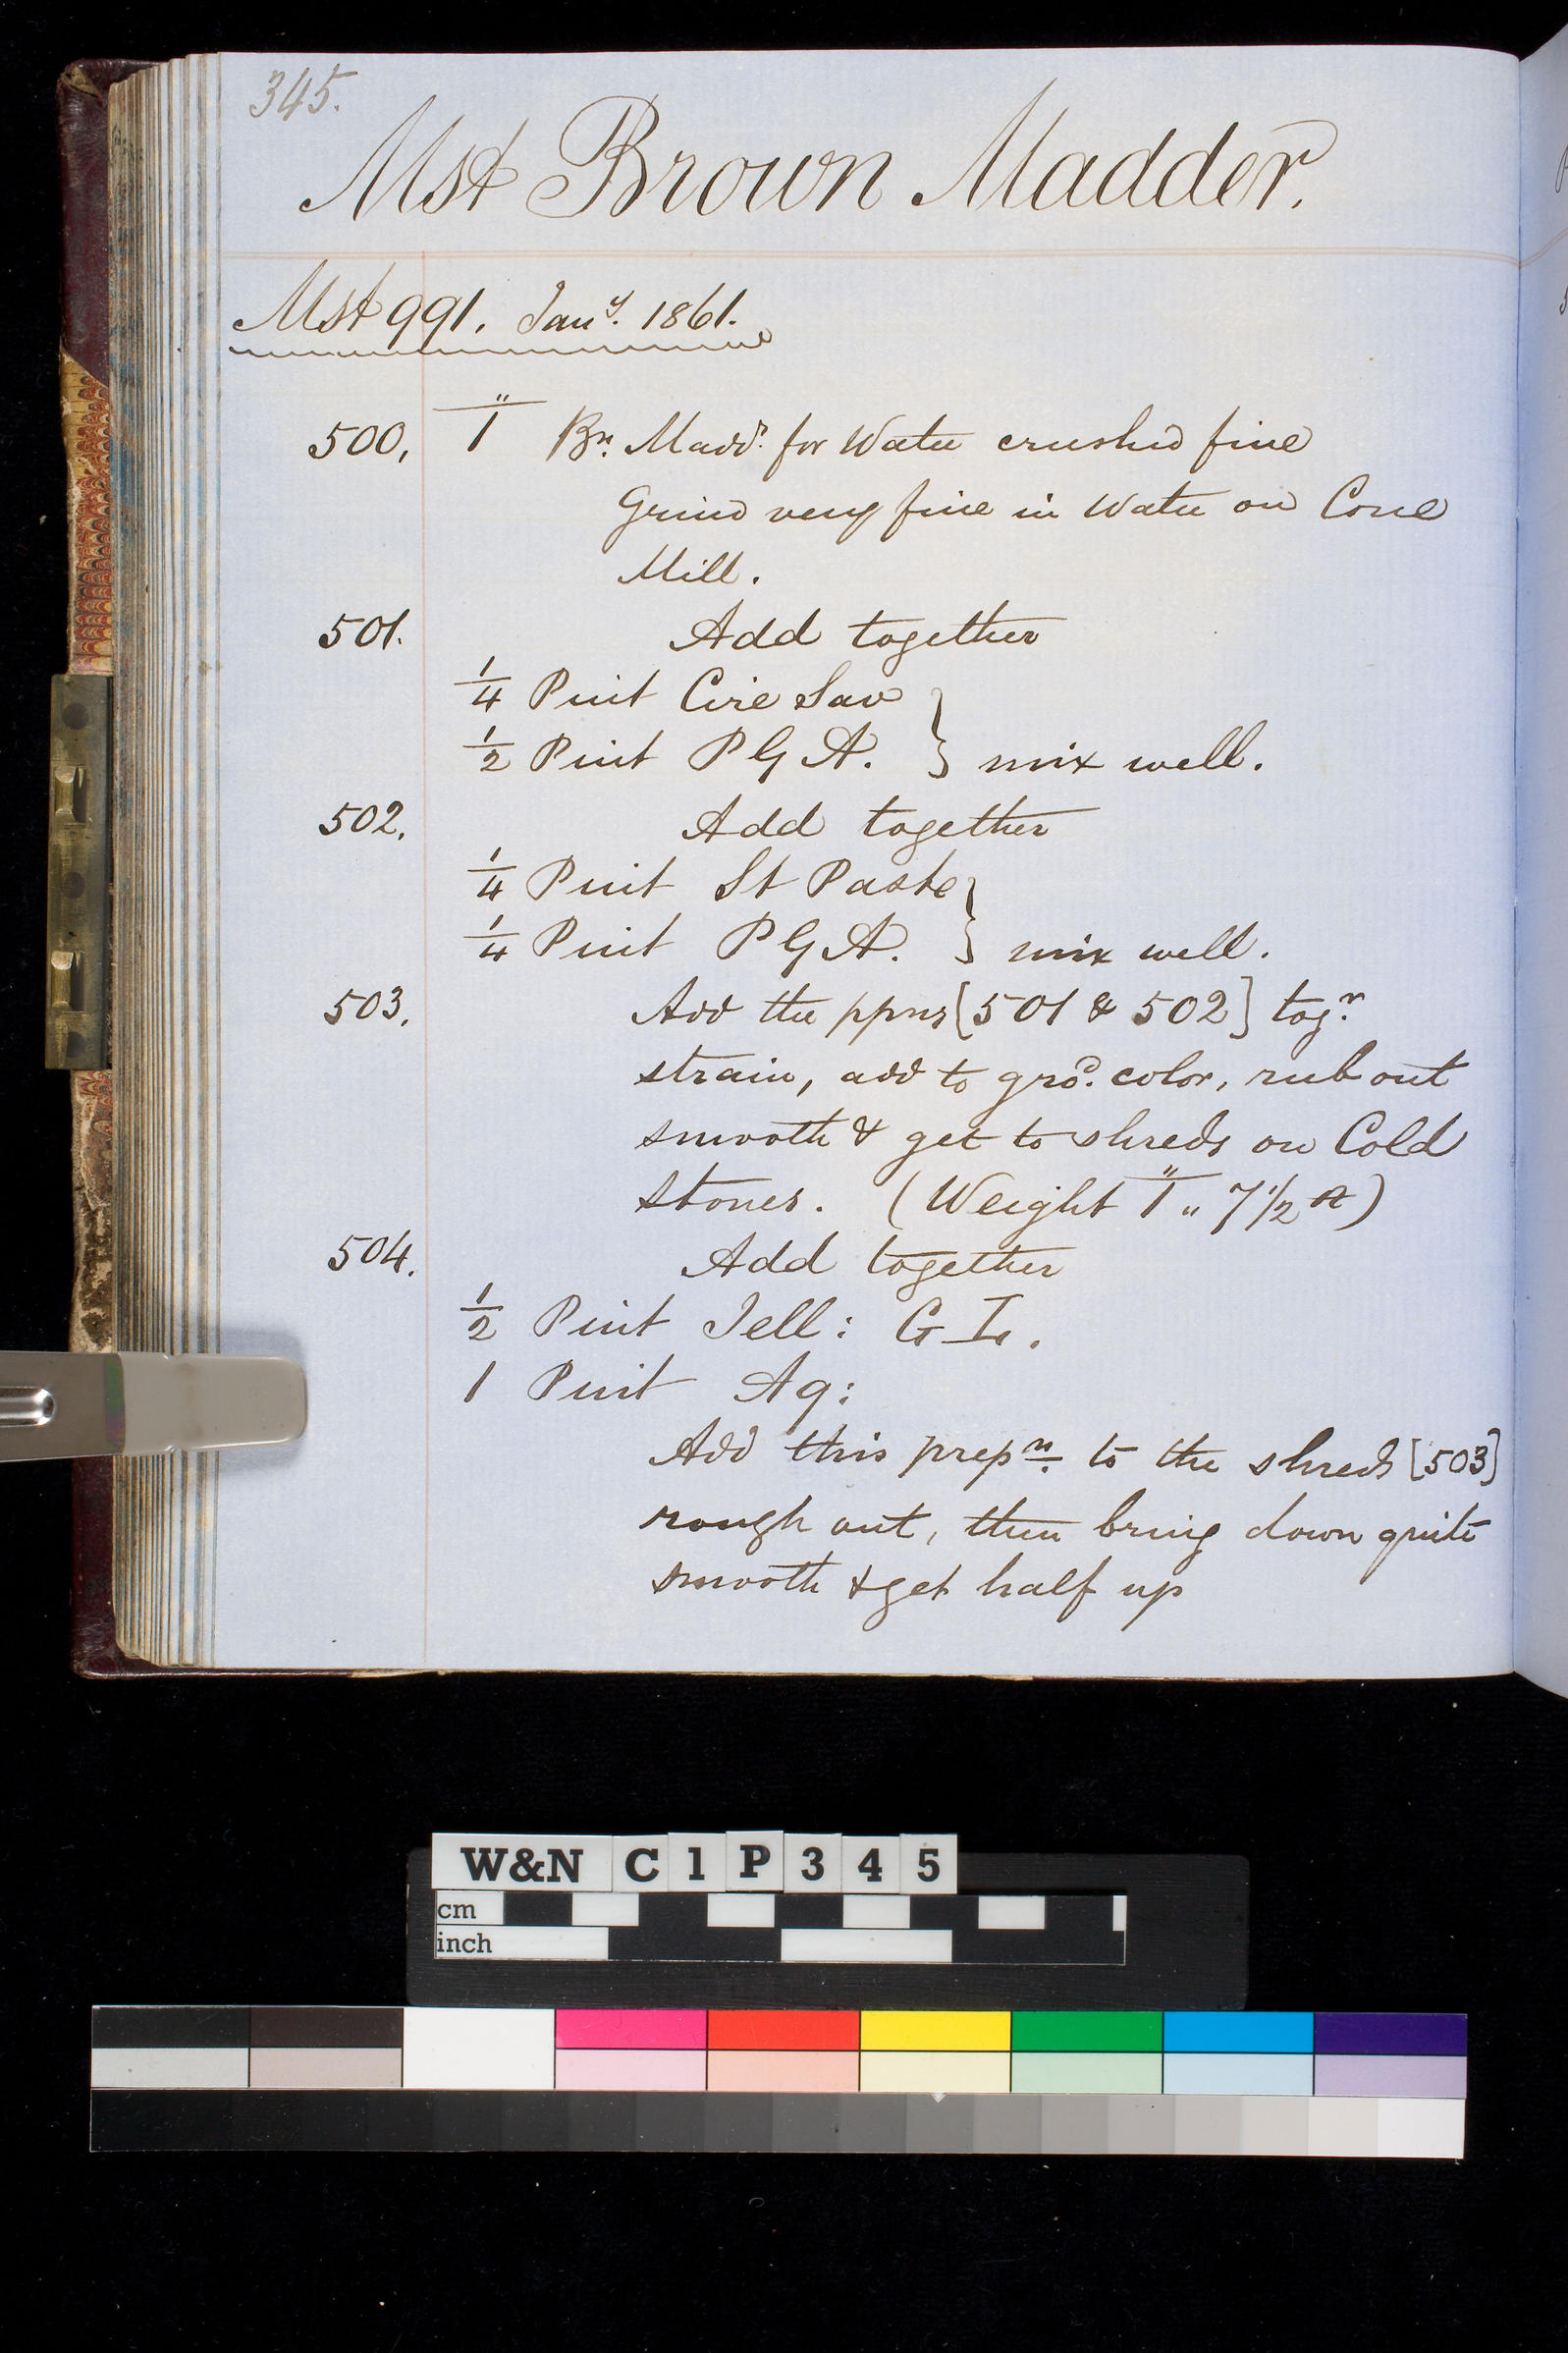 345.
Mst Brown Madder.
Mst 991. Jany. 1861.
500, 1 Br. Maddr. for Water crushed fine
Grind very fine in Water on Cone
Mill.
501. Add together
1/4 Pint Cire Sav
1/2 Pint P G A. } mix well.
502. Add together
1/4 Pint St Paste
1/4 Pint P G A. } mix well.
503. Add the pprns [501 & 502] togr.
strain, add to grod. color, rub out
smooth & get to shreds on Cold
stones. (Weight 1 " 7 1/2)
504. Add together
1/2 Pint Jell: G I.
1 Pint Aq:
Add this prepn. to the shreds [503]
rough out, then bring down quite
smooth & get half up
W&N C1P345
cm
inch